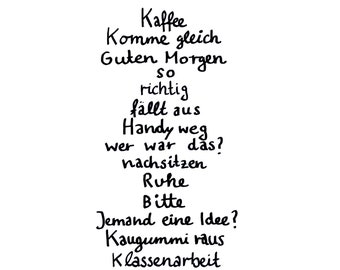 Kaffee
Komme gleich
Guten Morgen
so
richtig
fällt aus
Handy weg
wer war das?
nachsitzen
Ruhe
Bitte
Jemand eine Idee?
Kaugummi raus
Klassenarbeit